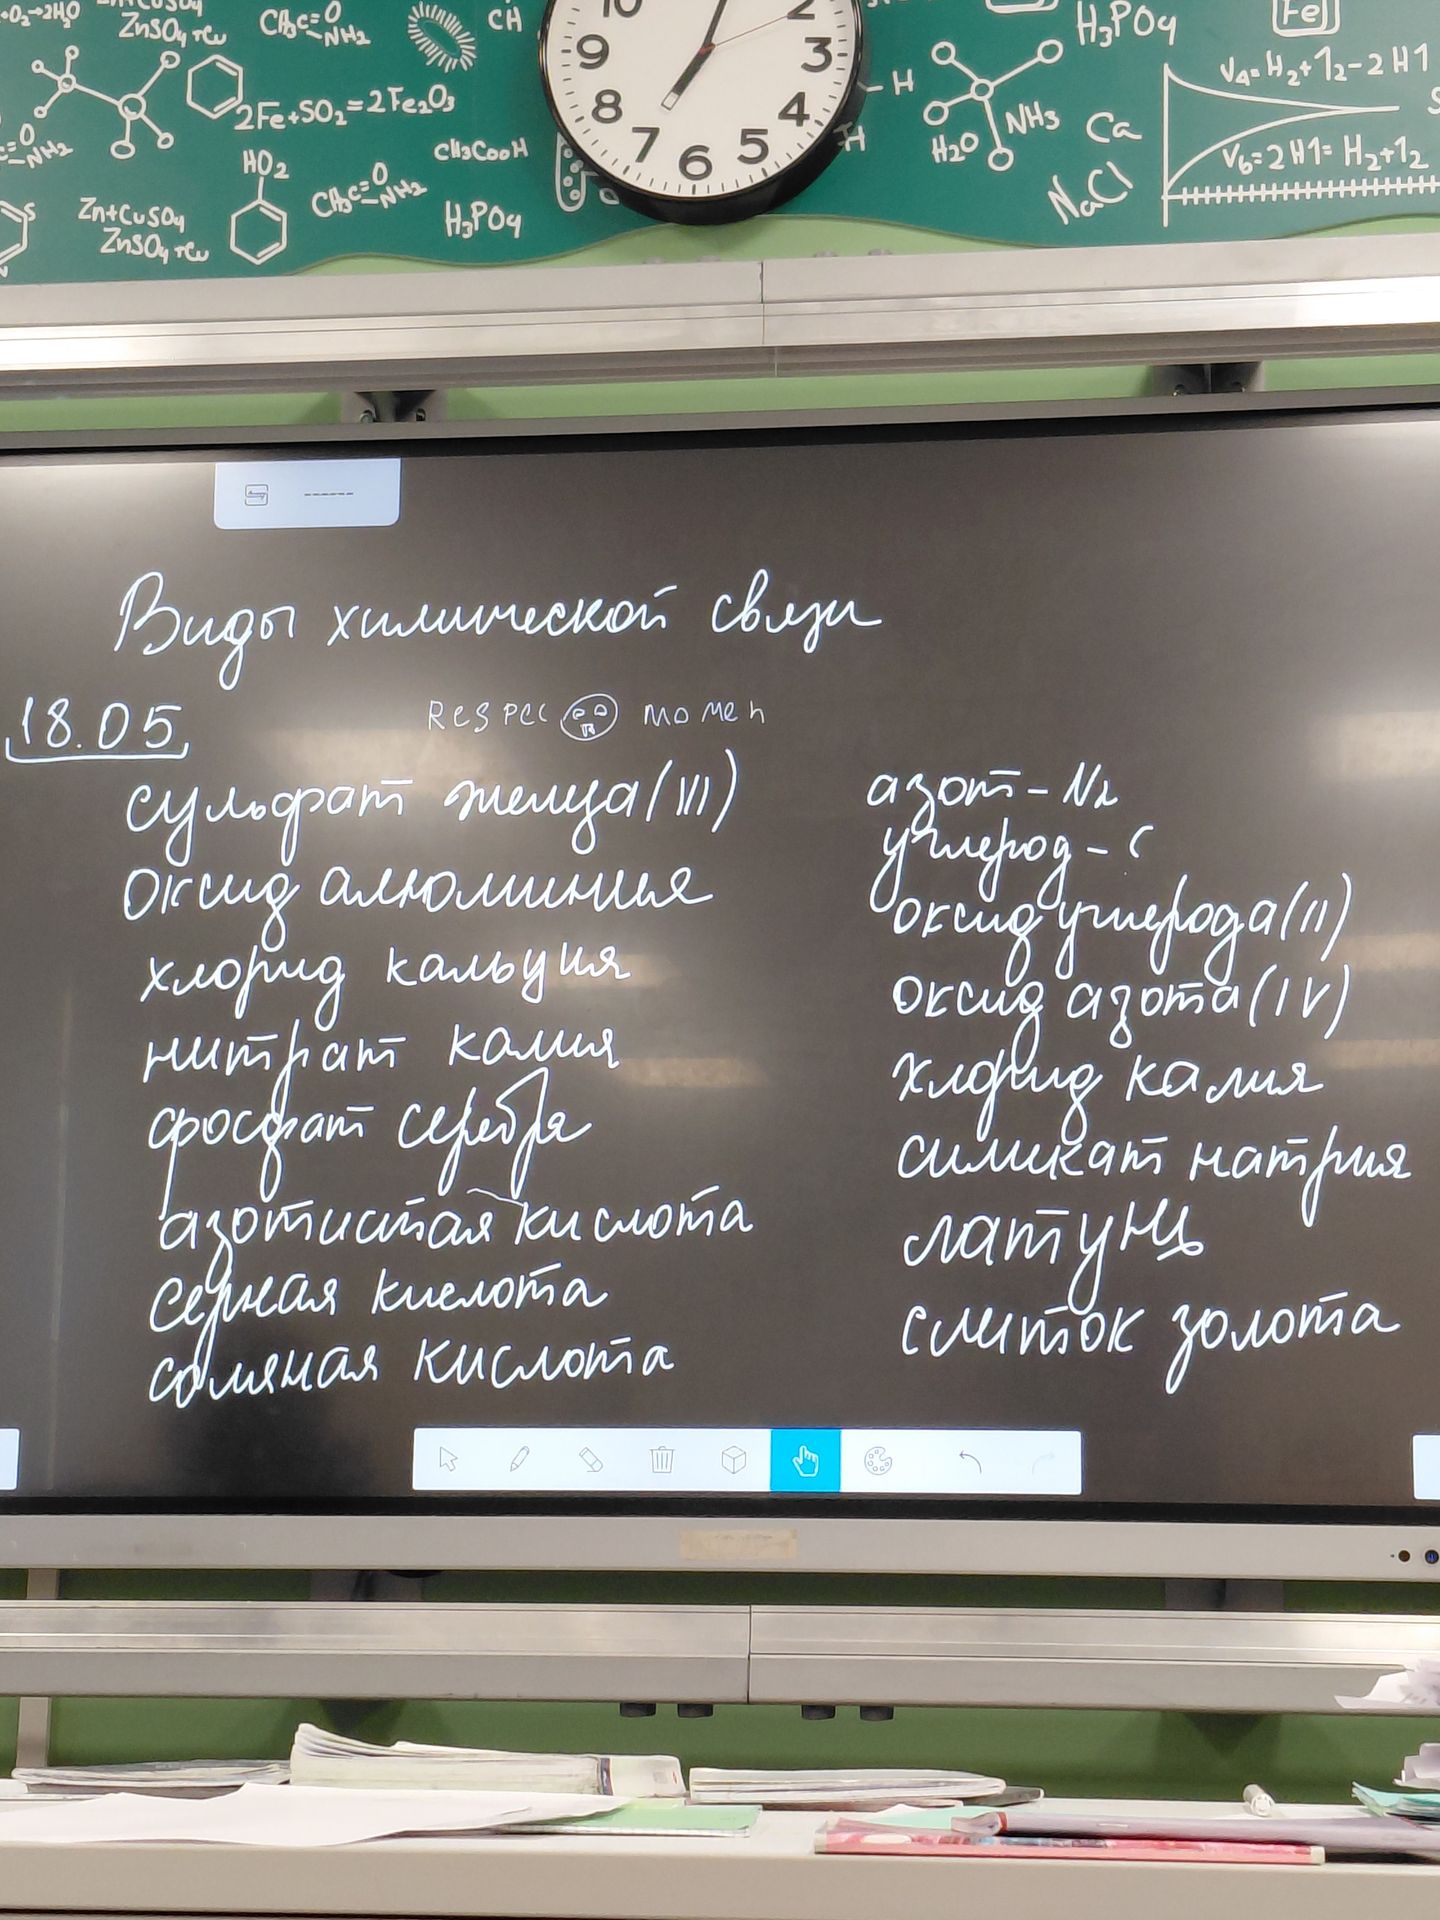 O₂→2H₂O
ZnSO₄+Cu
CH₃C=O
NH₂
CH
H₃PO₄
Fe
2Fe+SO₂=2Fe₂O₃
H
V₄=H₂+1₂-2H1
NH₃
H₂O
Ca
NaCl
V₆=2H1=H₂+1₂
=O
NH₂
CH₃COOH
H
HO₂
CH₃C=O
NH₂
Zn+CuSO₄
ZnSO₄+Cu
H₃PO₄
S
10
2
9
3
8
4
7
6
5
Виды химической связи
18.05
Respec momen
сульфат железа (III)
оксид алюминия
хлорид кальция
нитрат калия
фосфат серебра
азотистая кислота
серная кислота
соляная кислота
азот - N₂
углерод - C
оксид углерода (II)
оксид азота (IV)
хлорид калия
силикат натрия
латунь
слиток золота